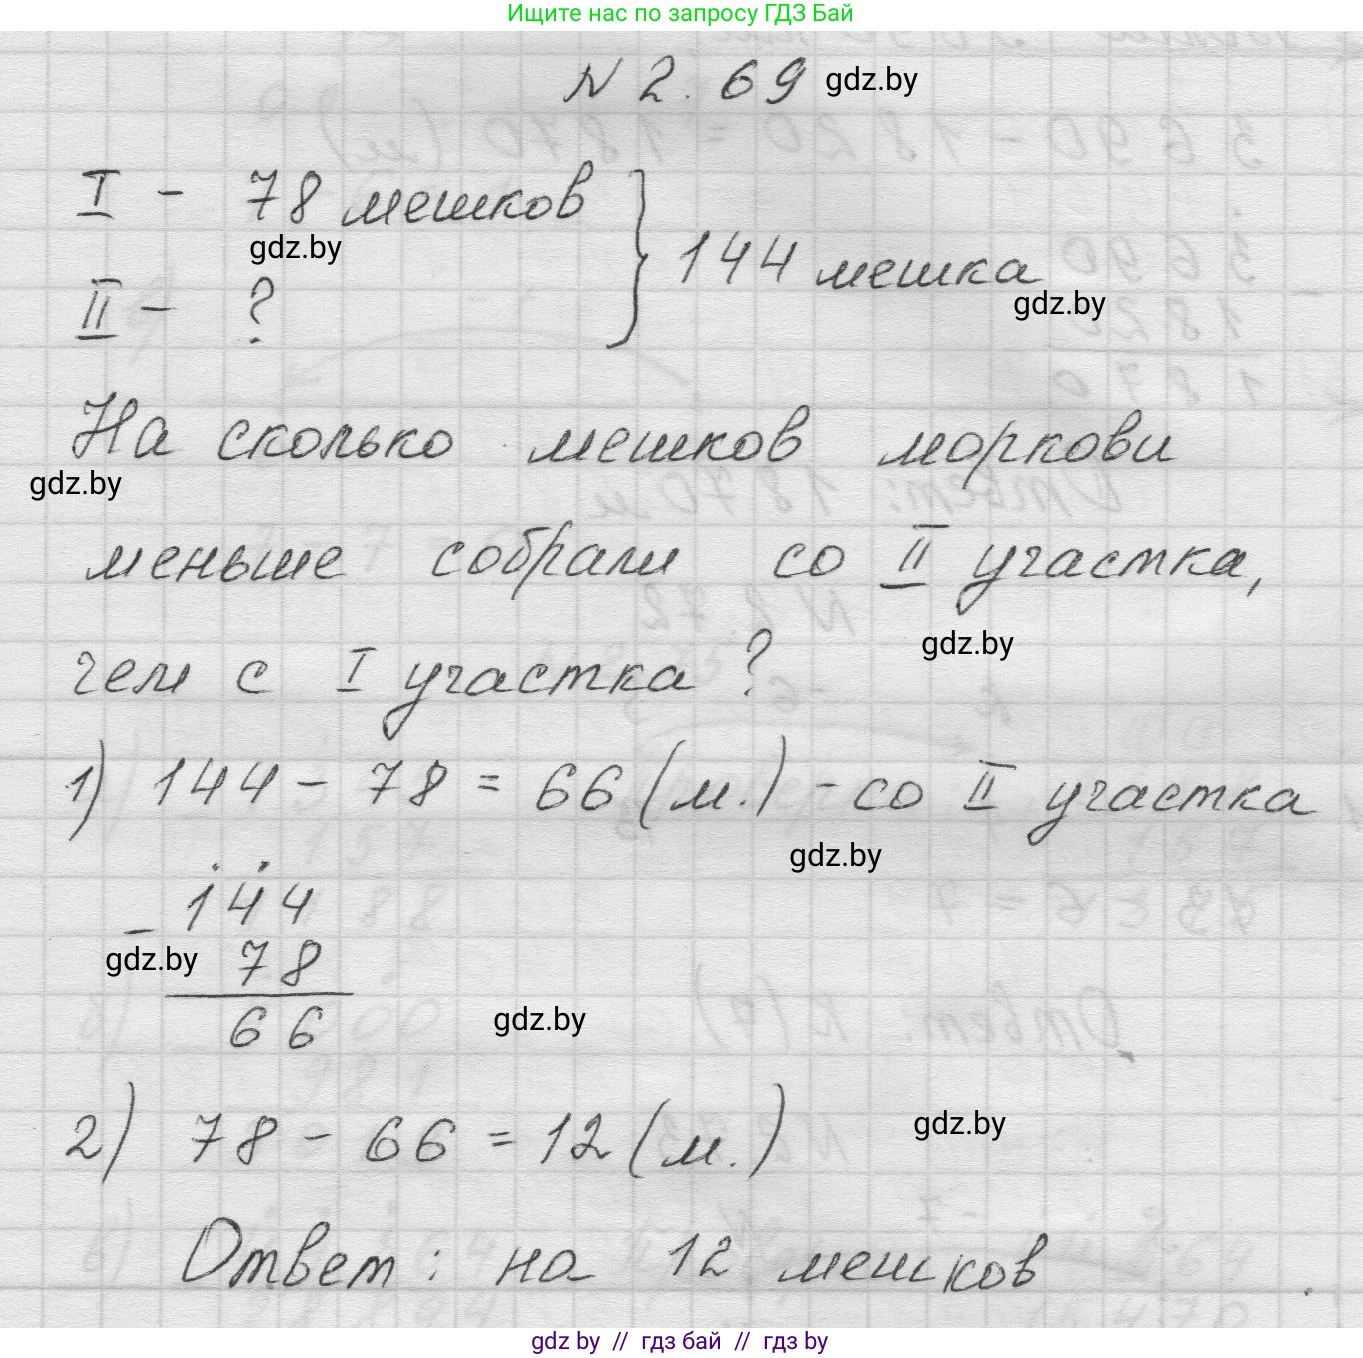 Ищите нас по запросу ГДЗ Бай
N 2.69 gdz.by
I - 78 мешков
gdz.by
II - ?
} 144 мешка
gdz.by
На сколько мешков моркови
gdz.by
меньше собрали со II участка,
gdz.by
чем с I участка?
1) 144 - 78 = 66 (м.) - со II участка
gdz.by
_ 144
gdz.by 78
66
gdz.by
2) 78 - 66 = 12 (м.)
gdz.by
Ответ: на 12 мешков
gdz by // гдз бай // gdz by